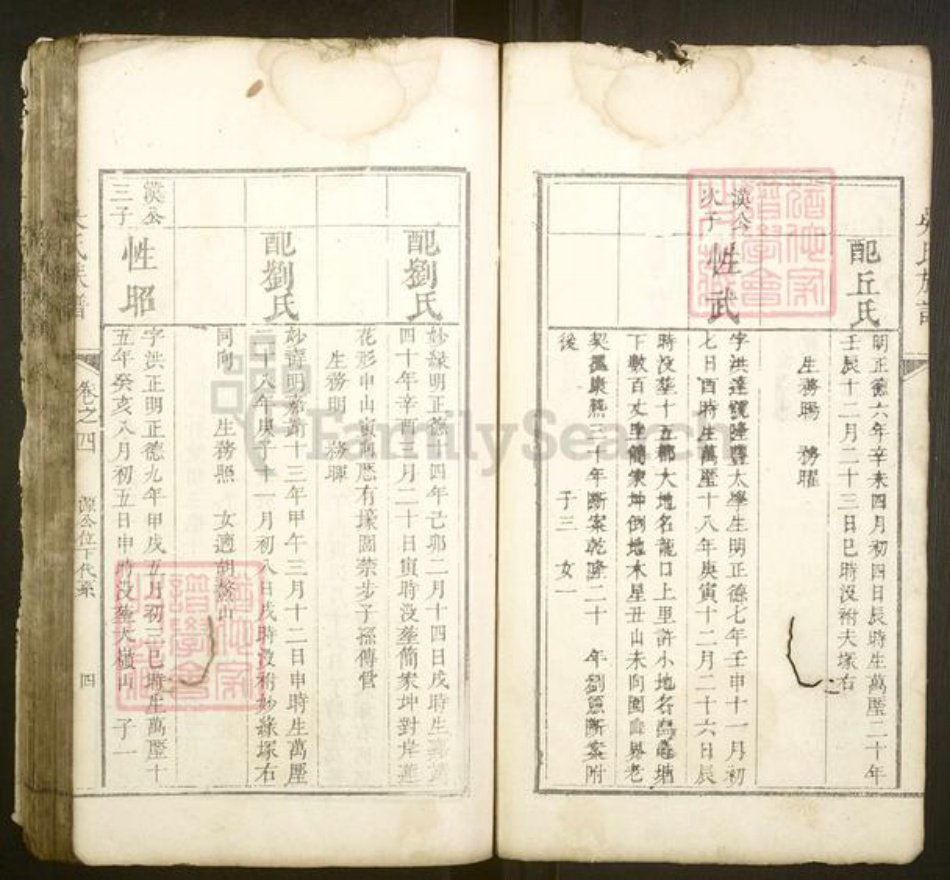 配丘氏
明正德六年辛未四月初四日辰時生萬曆二十年
壬辰十二月二十三日巳時沒祔夫塚右
生務暘 務曜
漢公
次子
性武
字洪達號隆豐太學生明正德七年壬申十一月初
七日酉時生萬曆十八年庚寅十二月二十六日辰
時沒葬十五都大地名龍口上里許小地名烏龜塘
下數百丈里簡家坤倒地木星丑山未向圍曲界老
契據康熙三十年斷案乾隆二十 年劉照斷案附
後 子三 女一
配劉氏
妙緣明正德十四年己卯二月十四日戌時生萬曆
四十年辛酉三月二十日寅時沒葬簡家坤對岸蓮
花形申山寅向歷有壕圖禁步子孫傳管
生務明 務暉
配劉氏
妙清明嘉靖十三年甲午三月十二日申時生萬曆
二十八年庚子十一月初八日戌時沒祔妙緣塚右
同向 生務照 女適胡鰲山
漢公
三子
性昭
字洪正明正德九年甲戌五月初三巳時生萬曆十
五年癸亥八月初五日申時沒葬大嶺山 子一
氏族譜
卷之四
源公位下代系
四
FamilySearch